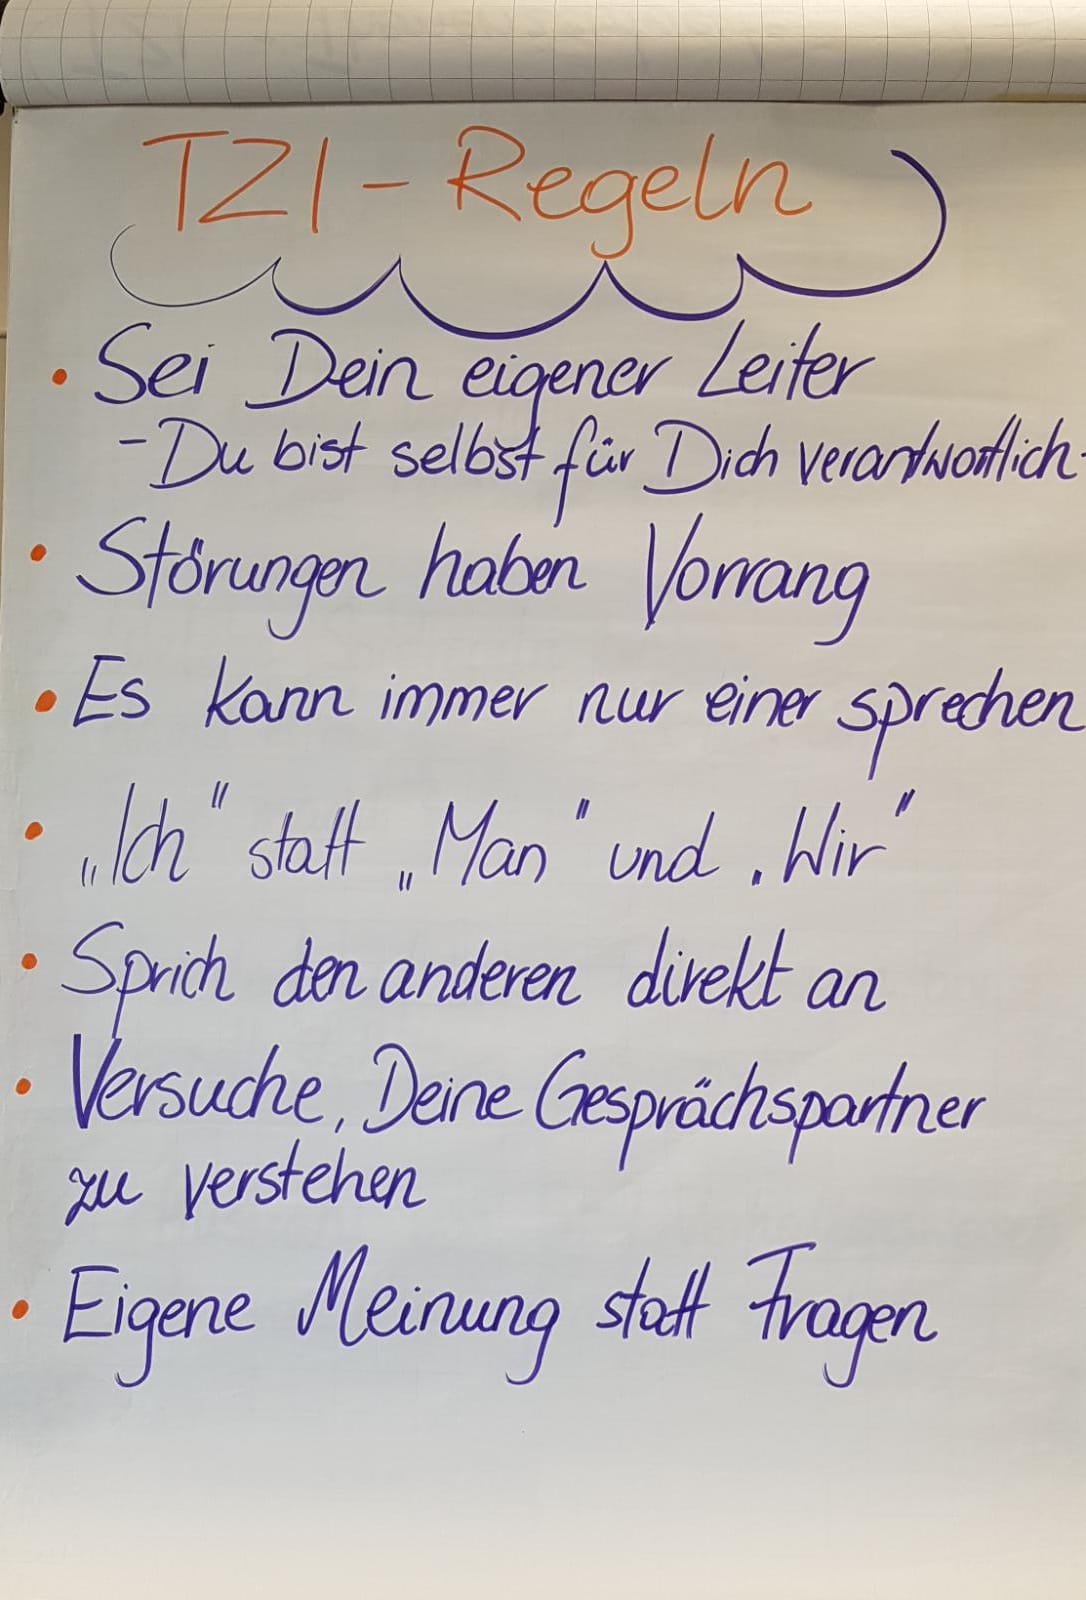 TZI - Regeln
• Sei Dein eigener Leiter
- Du bist selbst für Dich verantwortlich -
• Störungen haben Vorrang
• Es kann immer nur einer sprechen
• „Ich" statt „Man" und „Wir"
• Sprich den anderen direkt an
• Versuche, Deine Gesprächspartner
zu verstehen
• Eigene Meinung statt Fragen